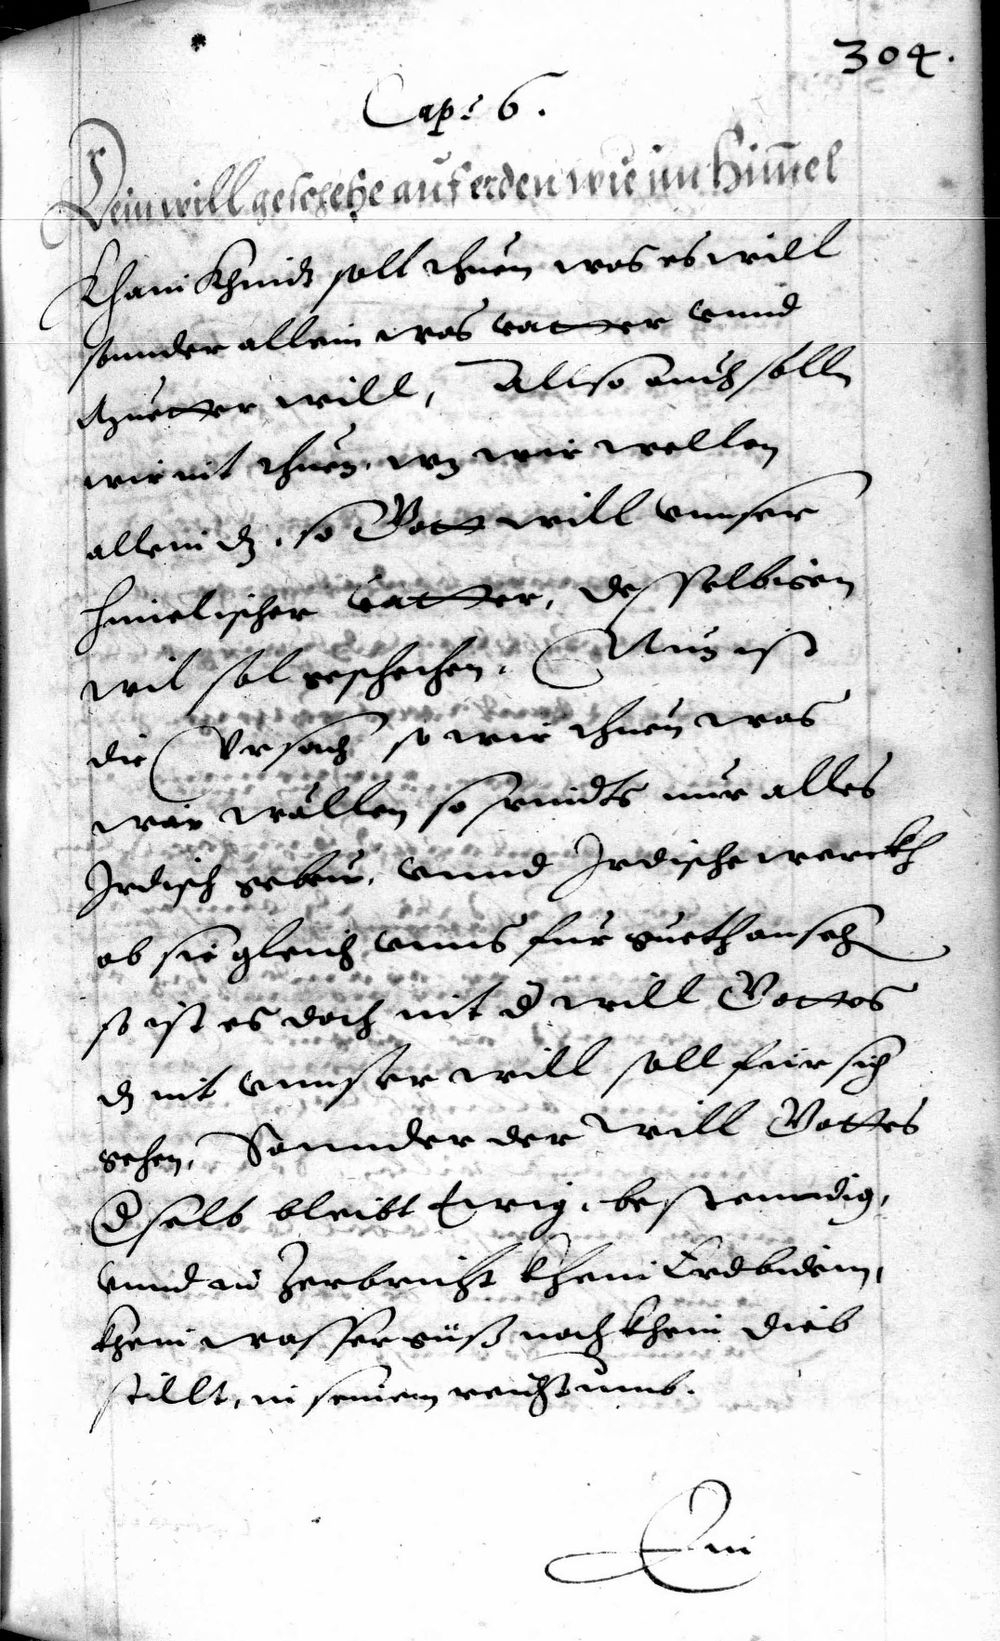 304.
Cap: 6.
Dein will geschehe auf erden wie im Himel
Khain Khindt soll thuen was es will
sonnder allein was vatter vnnd
Muetter will, Allso auch solln
wir nit thuen, wz wir wellen
allein dz, so Gott will vnnser
himelischer vatter, desselbigen
wil sol geschehen. Nun ist
die Vrsach so wir thuen was
wir wöllen so seindts nur alles
Irdisch gebeu, vnnd Irdische werckh
ob sie gleich vnns für gueth ansehen
so ist es doch nit d will Gottes
dz nit vnnser will soll für sich
gehen, Sonnder der will Gottes
dselb bleibt Ewig, bestenndig,
vnnd in Zerbricht khein Erdbidem,
khein wassergüß noch khein dieb
stillt, in seinem reichtumb.
Ein